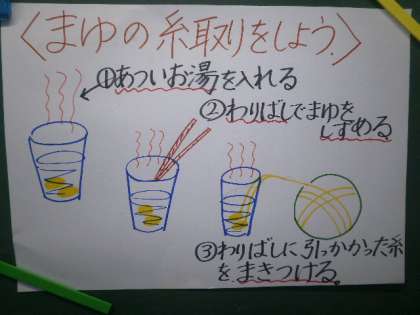 〈まゆの糸取りをしよう.〉
①あついお湯を入れる
②わりばしでまゆを
しずめる
③わりばしに引っかかった糸
をまきつける。